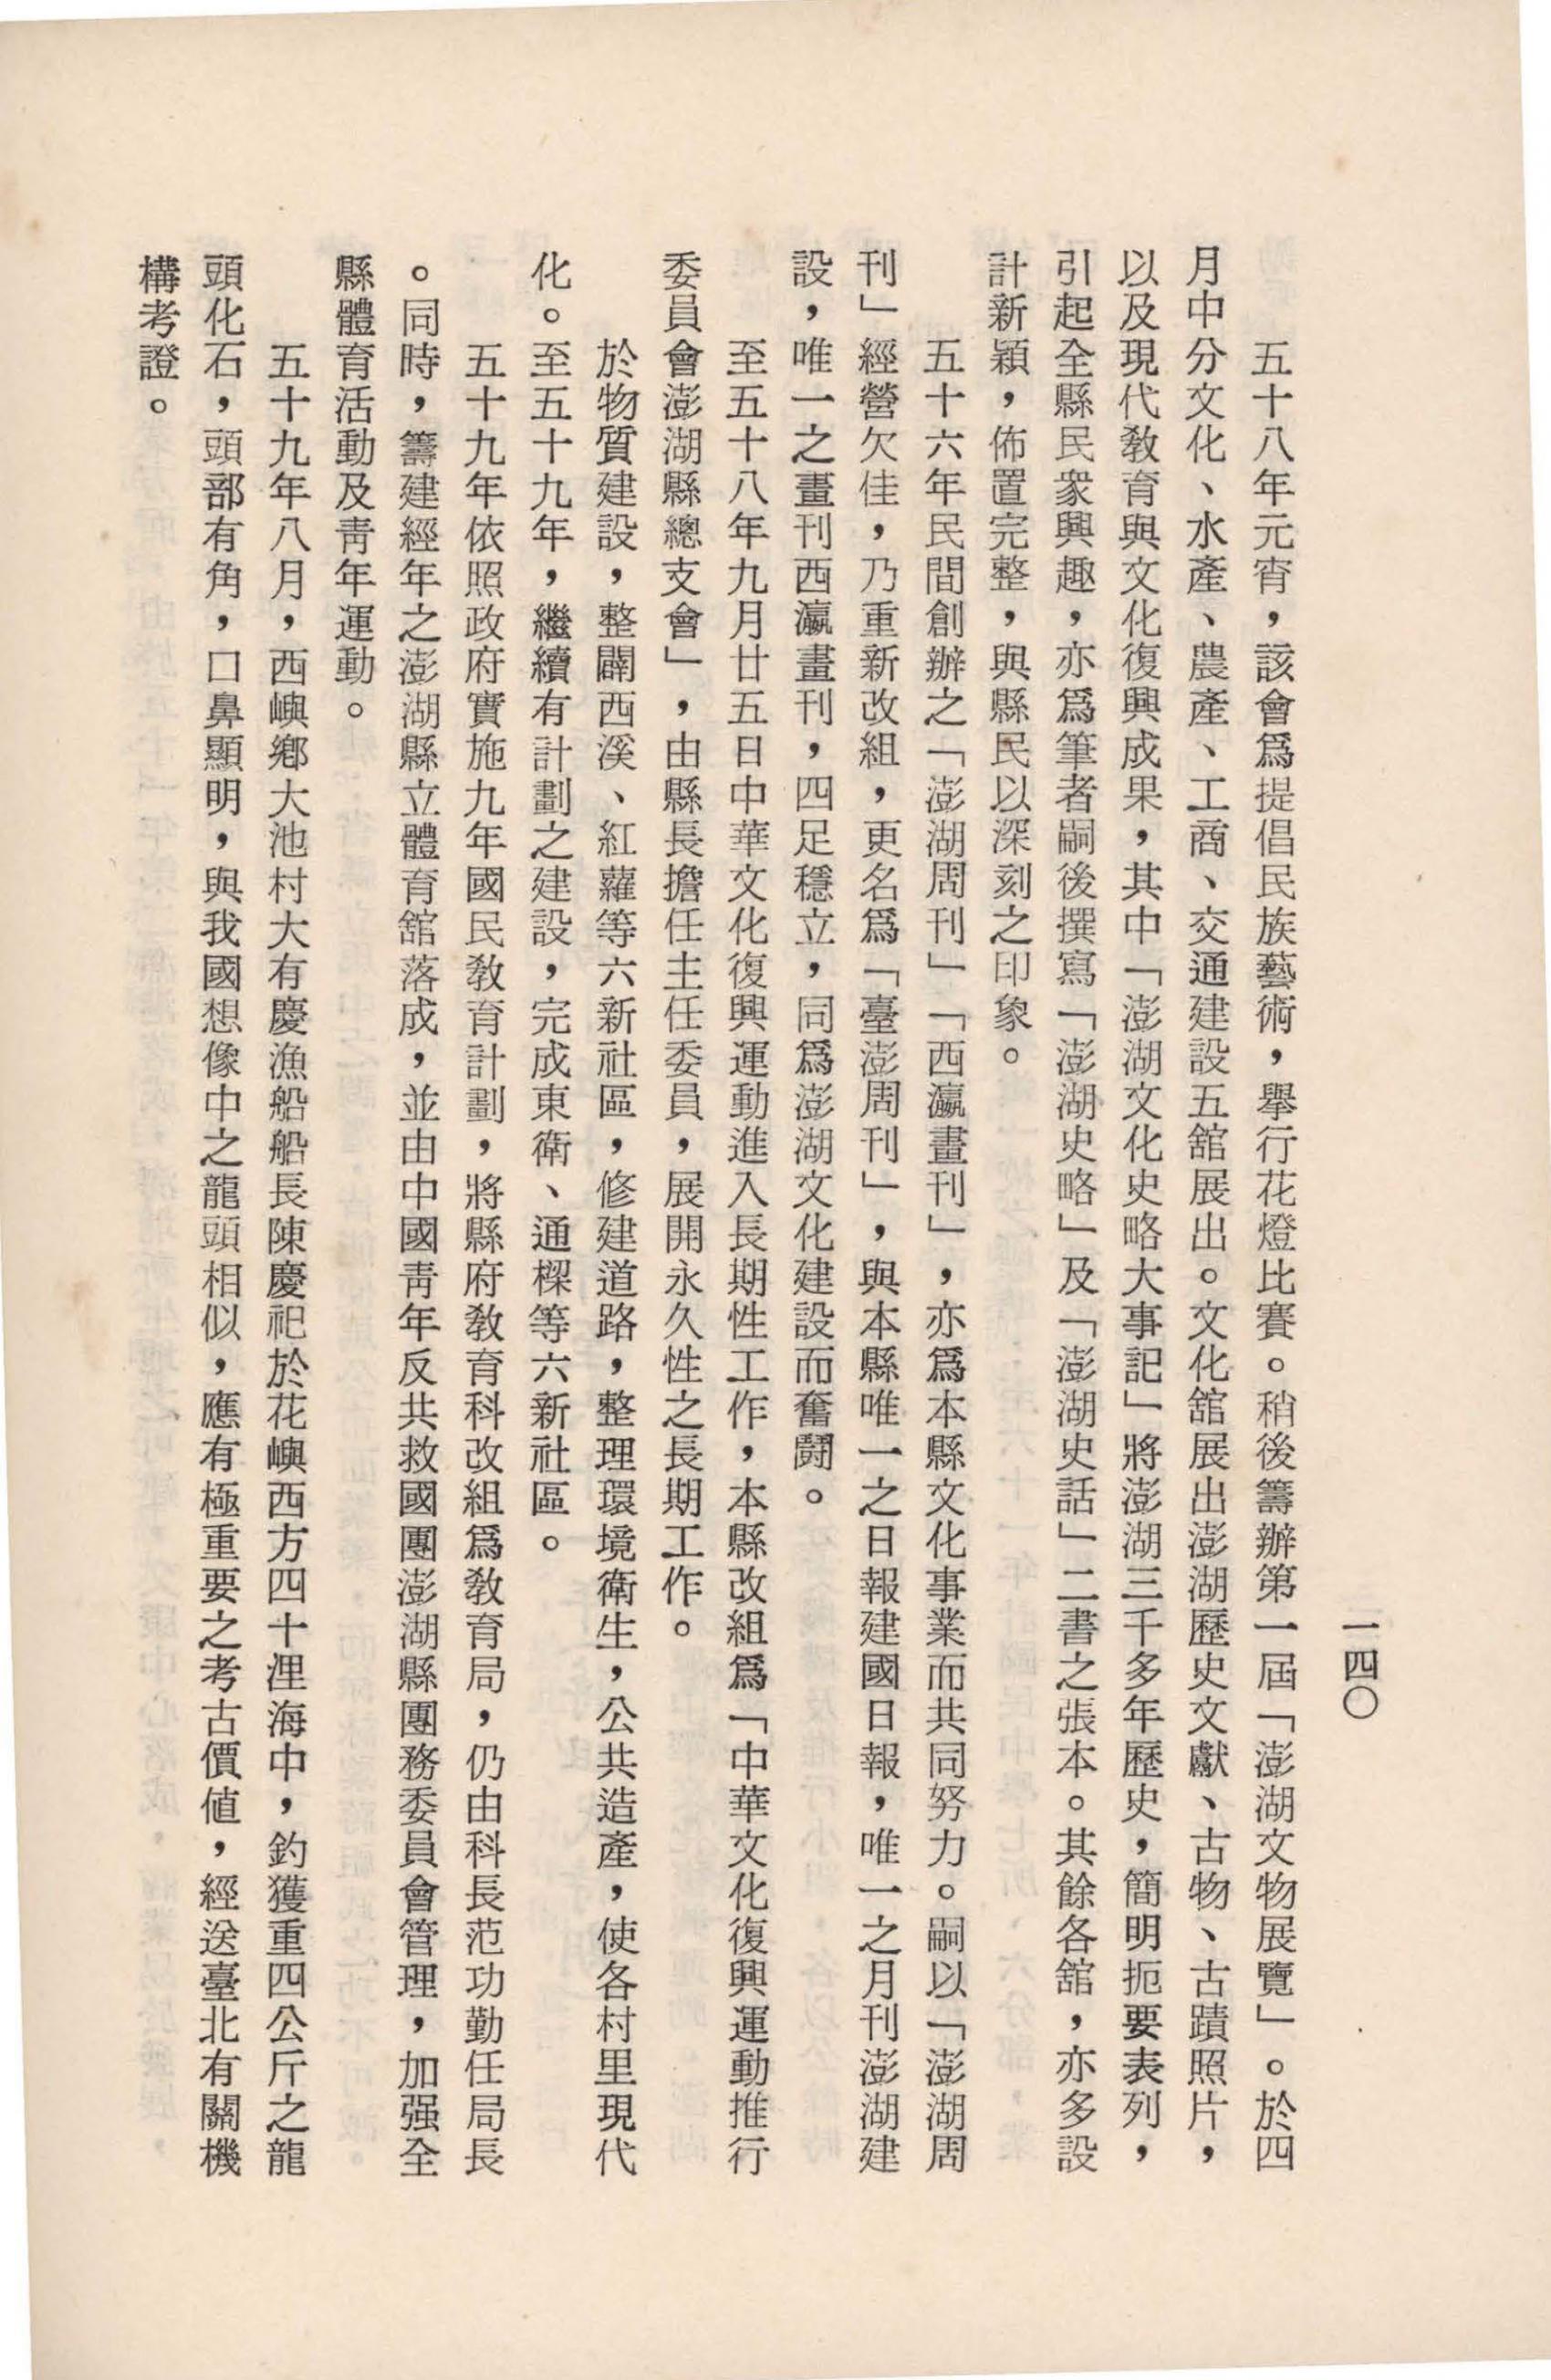 一四〇
五十八年元宵，該會爲提倡民族藝術，舉行花燈比賽。稍後籌辦第一屆「澎湖文物展覽」。於四
月中分文化、水產、農產、工商、交通建設五舘展出。文化舘展出澎湖歷史文獻、古物、古蹟照片，
以及現代敎育與文化復興成果，其中「澎湖文化史略大事記」將澎湖三千多年歷史，簡明扼要表列，
引起全縣民衆興趣，亦爲筆者嗣後撰寫「澎湖史略」及「澎湖史話」二書之張本。其餘各舘，亦多設
計新穎，佈置完整，與縣民以深刻之印象。
五十六年民間創辦之「澎湖周刊」「西瀛畫刊」，亦爲本縣文化事業而共同努力。嗣以「澎湖周
刊」經營欠佳，乃重新改組，更名爲「臺澎周刊」，與本縣唯一之日報建國日報，唯一之月刊澎湖建
設，唯一之畫刊西瀛畫刊，四足穩立，同爲澎湖文化建設而奮鬪。
至五十八年九月廿五日中華文化復興運動進入長期性工作，本縣改組爲「中華文化復興運動推行
委員會澎湖縣總支會」，由縣長擔任主任委員，展開永久性之長期工作。
於物質建設，整闢西溪、紅蘿等六新社區，修建道路，整理環境衛生，公共造產，使各村里現代
化。至五十九年，繼續有計劃之建設，完成東衛、通樑等六新社區。
五十九年依照政府實施九年國民敎育計劃，將縣府敎育科改組爲敎育局，仍由科長范功勤任局長
。同時，籌建經年之澎湖縣立體育舘落成，並由中國靑年反共救國團澎湖縣團務委員會管理，加强全
縣體育活動及靑年運動。
五十九年八月，西嶼鄕大池村大有慶漁船船長陳慶祀於花嶼西方四十浬海中，釣獲重四公斤之龍
頭化石，頭部有角，口鼻顯明，與我國想像中之龍頭相似，應有極重要之考古價値，經送臺北有關機
構考證。